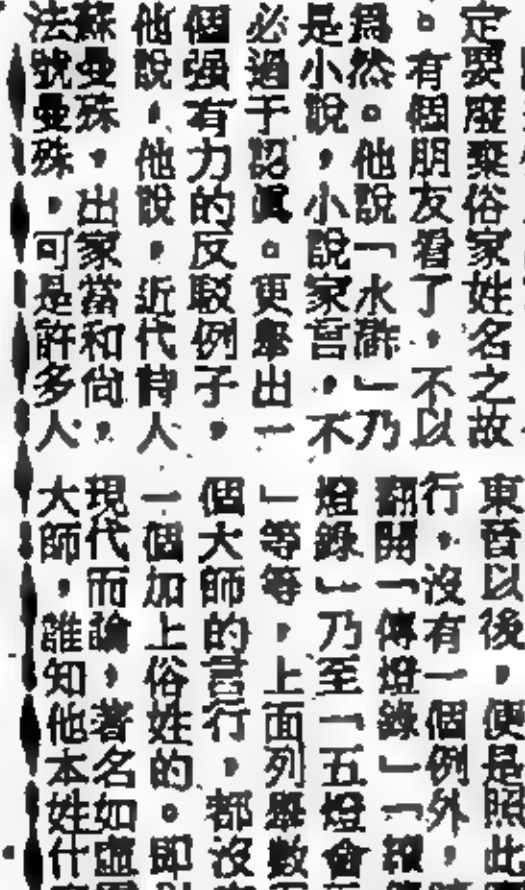 定要廢棄俗家姓名之故
。有個朋友看了，不以
爲然。他說「水滸」乃
是小說，小說家言，不
必過于認眞。更擧出一
個强有力的反駁例子，
他說，他說，近代詩人
蘇曼殊，出家當和尙，
法號曼殊，可是許多人
東晉以後，便是照此
行，沒有一個例外，
翻開「傳燈錄」「續
燈錄」乃至「五燈會
」等等，上面列擧數
個大師的言行，都沒
一個加上俗姓的。即
現代而論，著名如虛
大師，誰知他本姓什